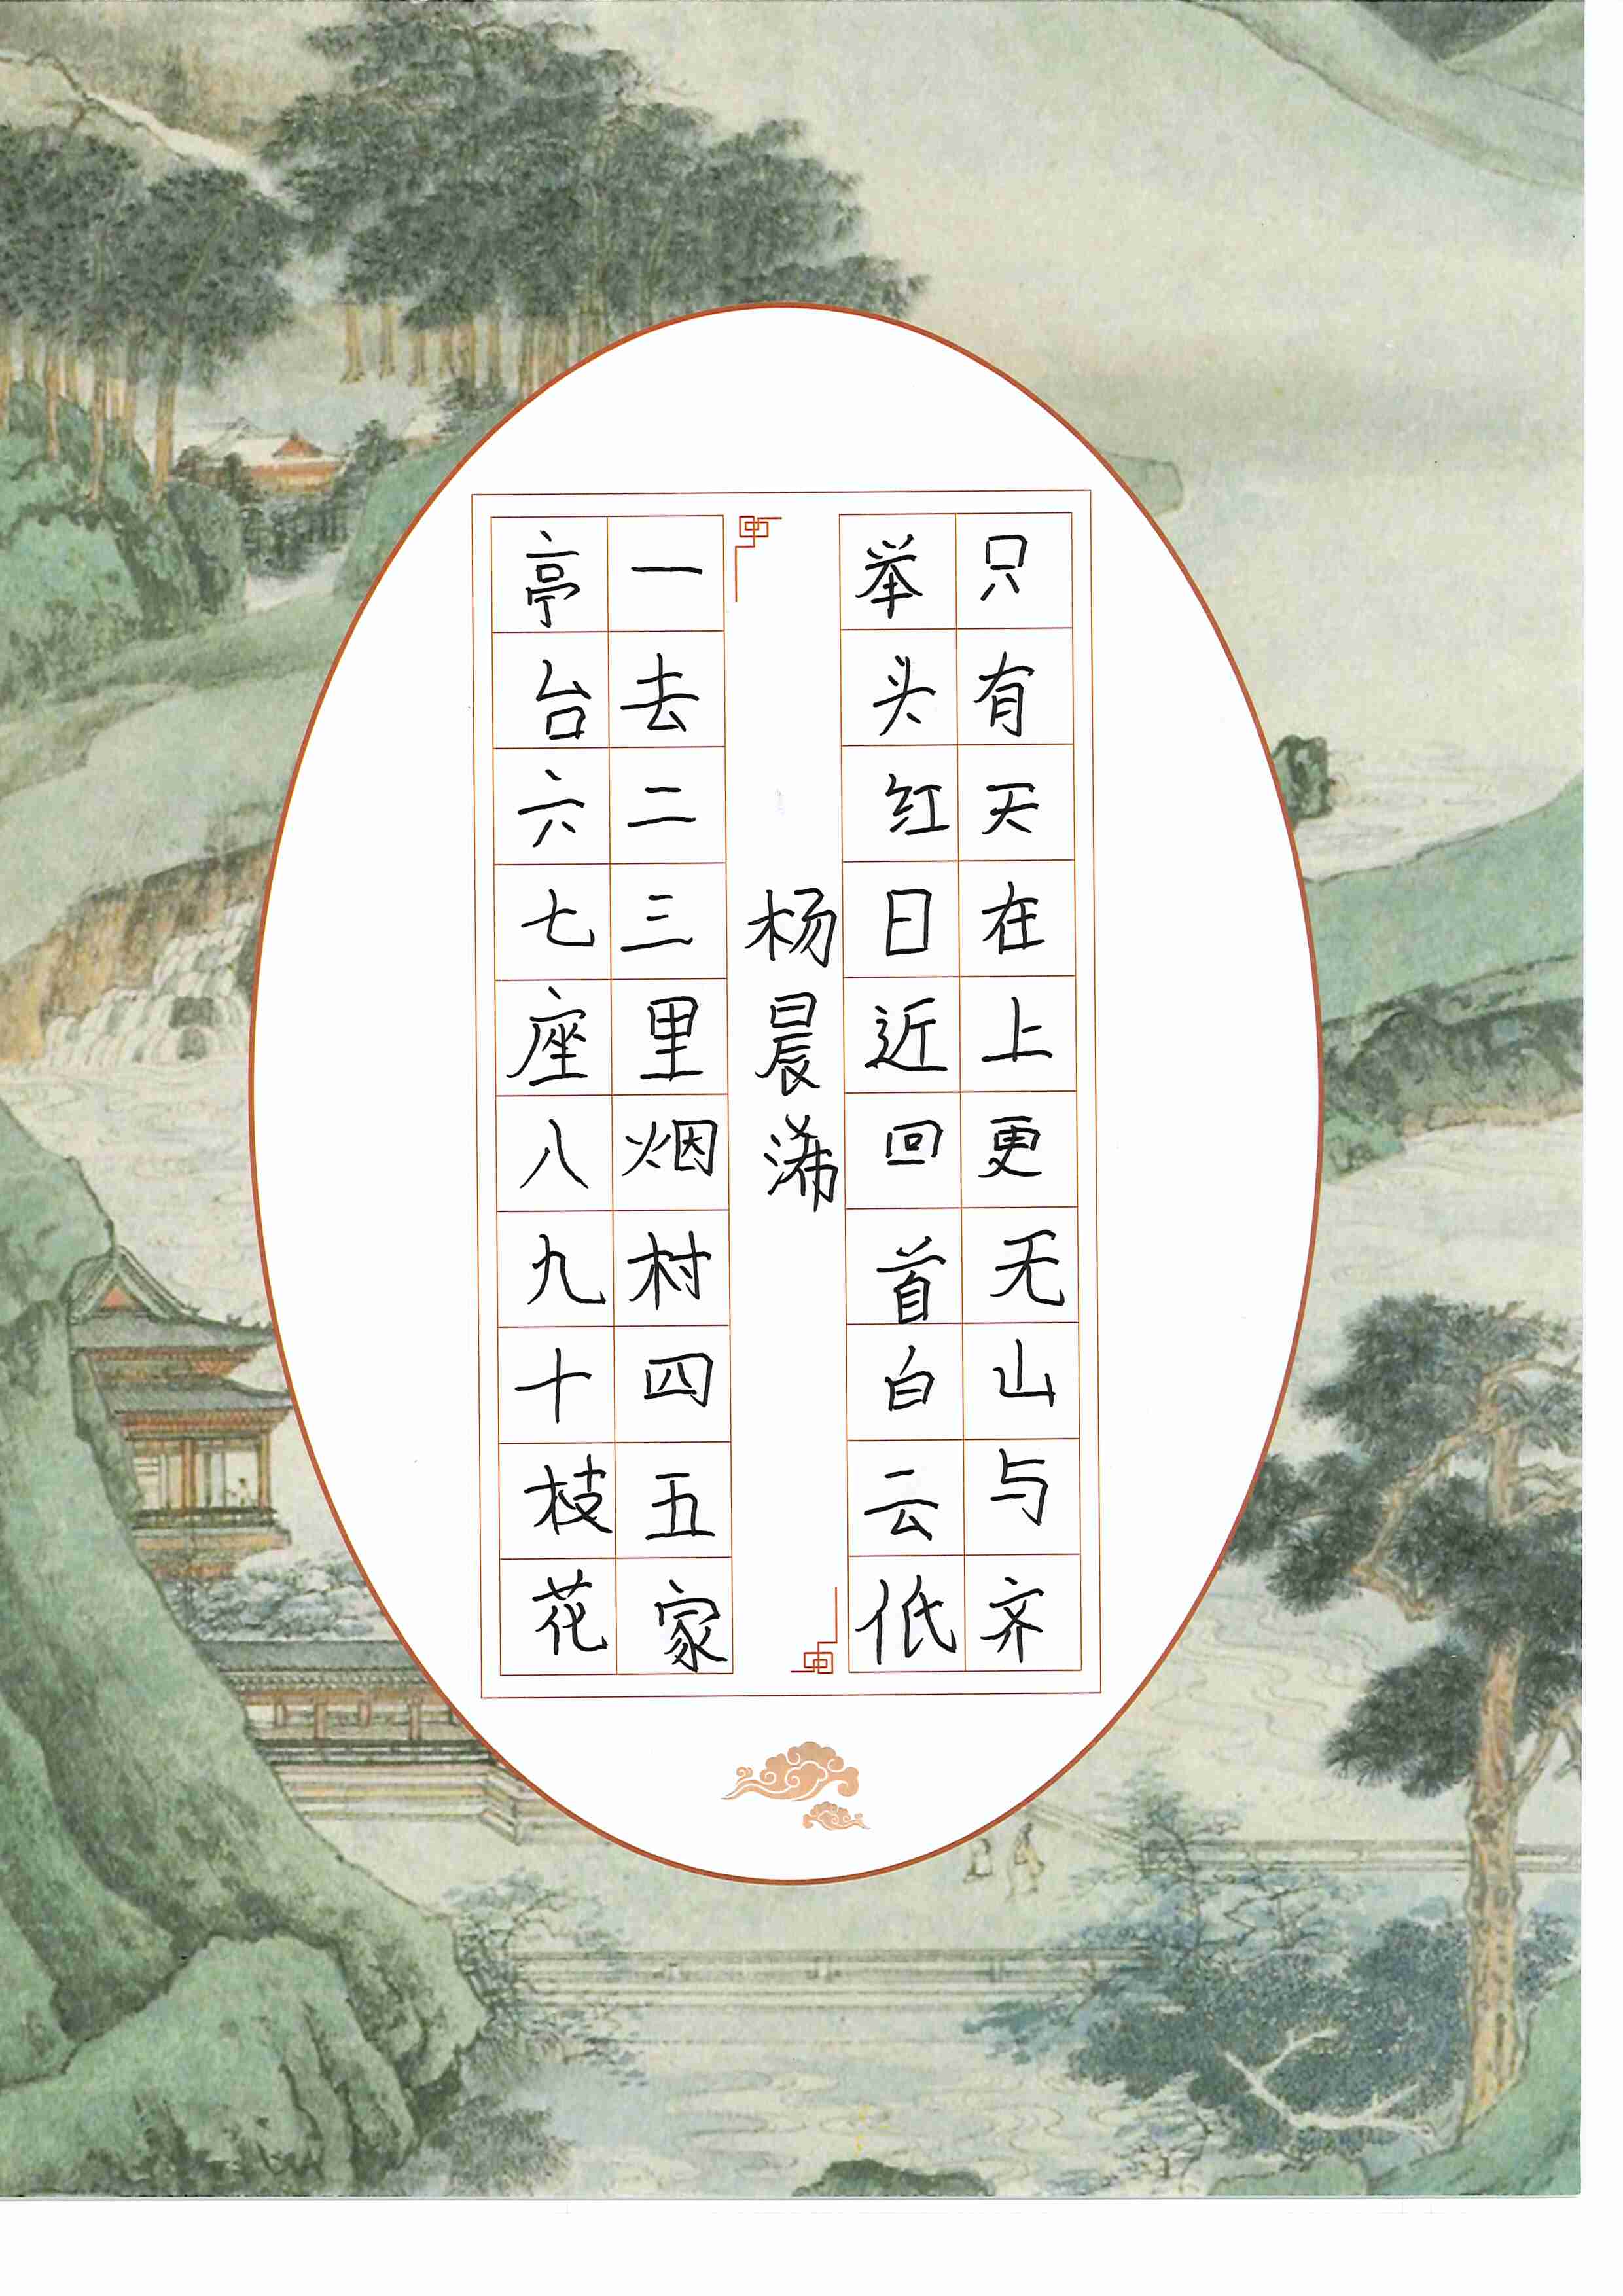 只有天在上更无山与齐
举头红日近回首白云低
杨晨浠
一去二三里烟村四五家
亭台六七座八九十枝花